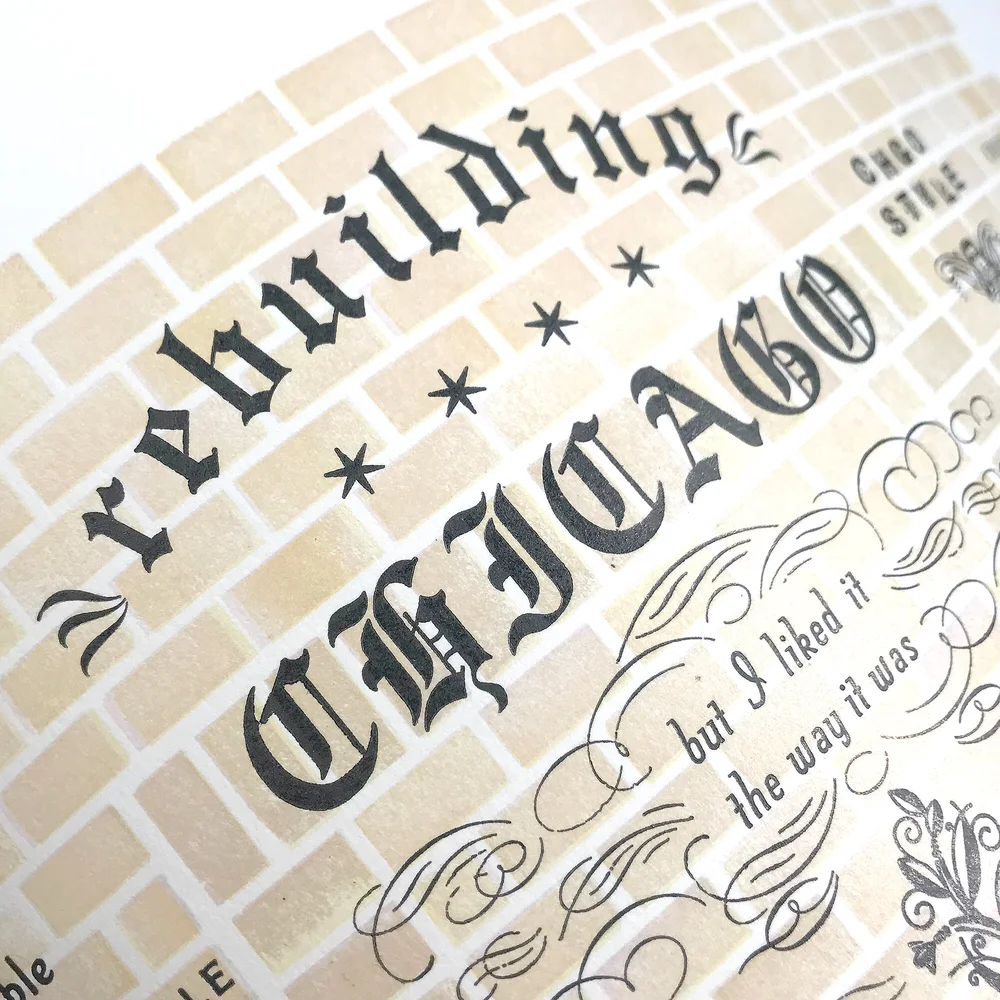 rebuilding
CHICAGO
CHGO
STYLE
but I liked it
the way it was